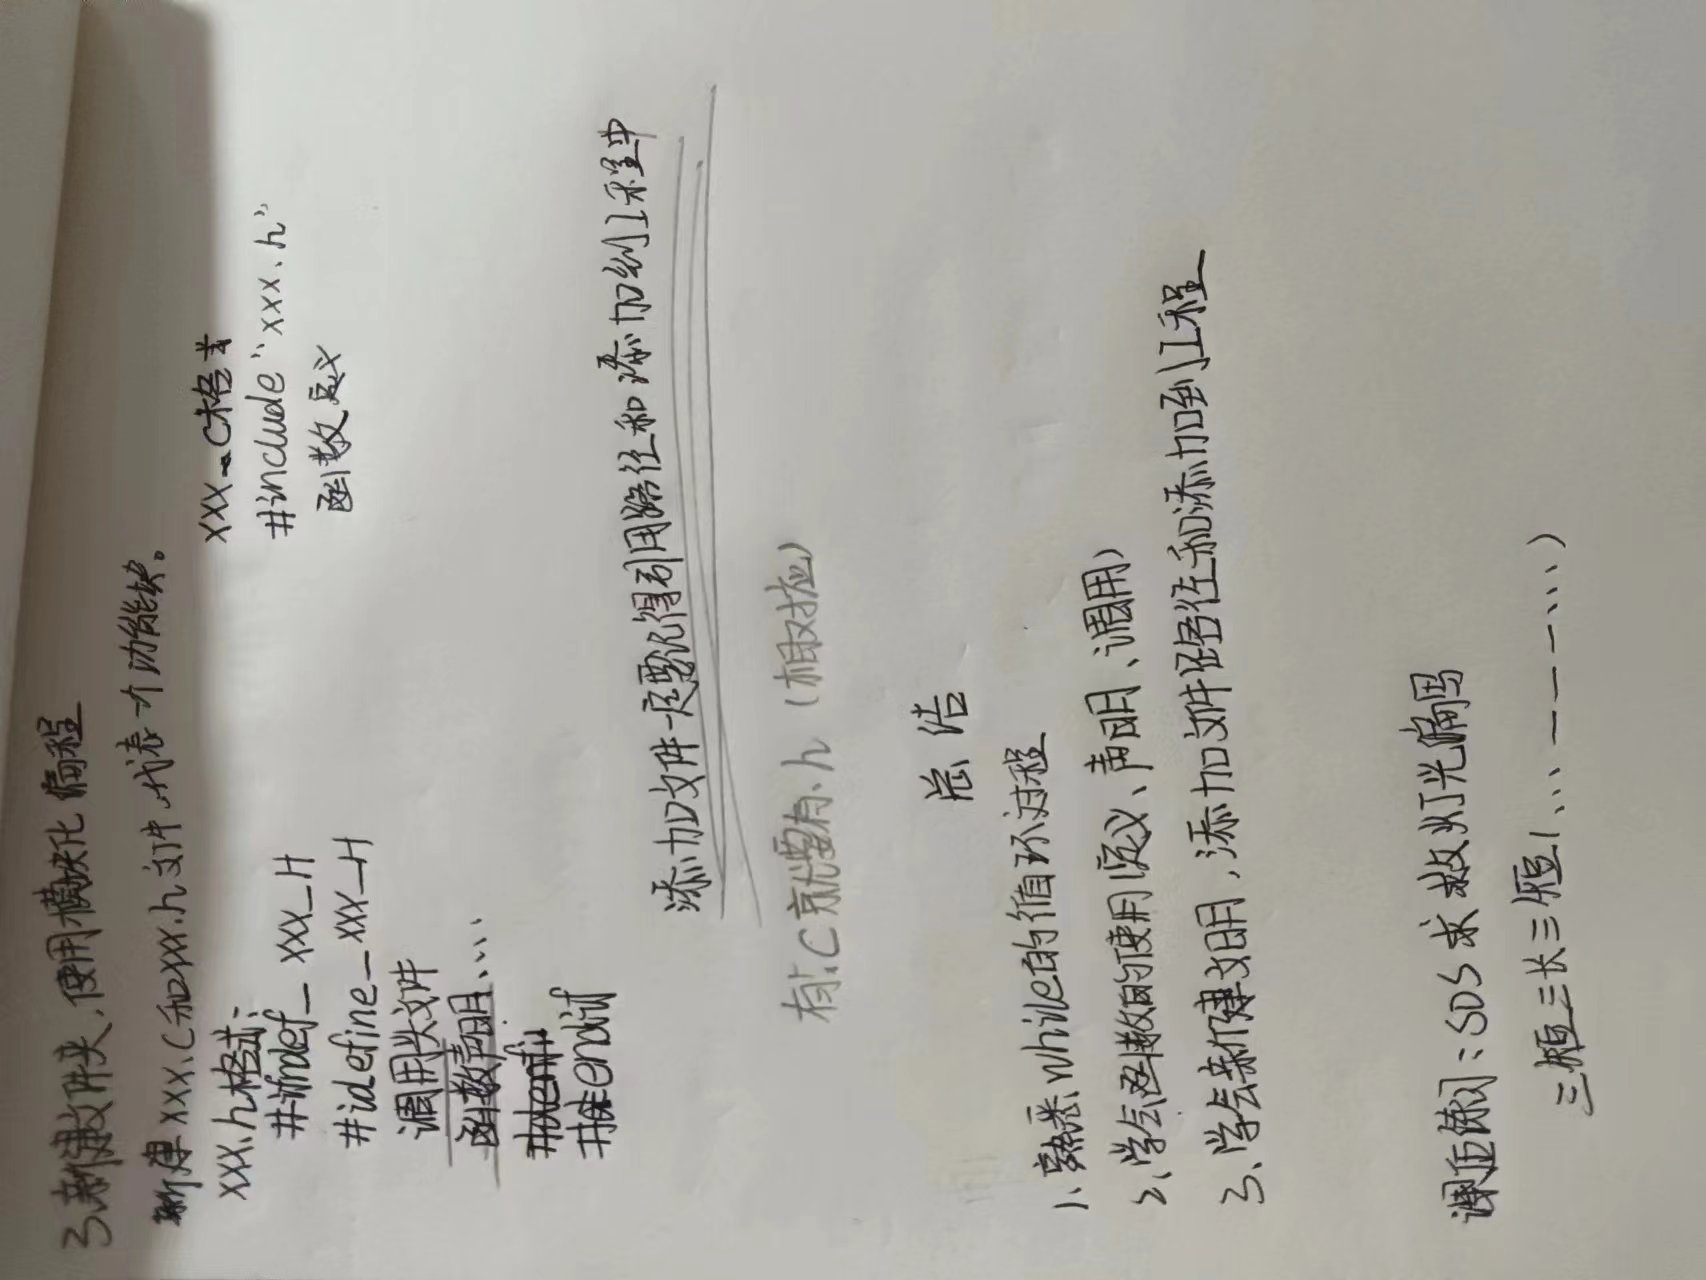 3、新建文件夹,使用模块化编程
新建xxx.c和xxx.h文件,代表一个功能块。
xxx.h格式:
#ifndef_xxx_H
#idefine_xxx_H
调用头文件
函数声明...
#endif
xxx.c格式
#include"xxx.h"
函数定义
添加文件一定要记得引用路径和添加到工程中
有.C就要有.h(相对应)
总结
1、熟悉while的循环过程
2、学会函数的使用(定义、声明、调用)
3、学会新建文明,添加文件路径和添加到工程
课后练习:SOS求救灯光编码
三短三长三短(...———...)